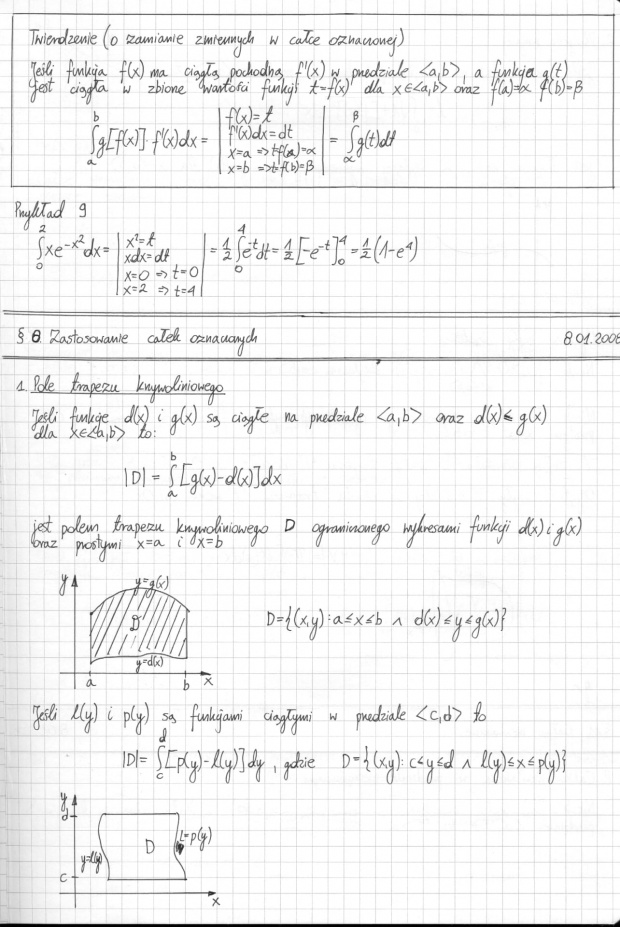 Twierdzenie (o zamianie zmiennych w całce oznaczonej)
Jeśli funkcja f(x) ma ciągłą pochodną f'(x) w przedziale <a,b>, a funkcja g(t)
jest ciągła w zbiorze wartości funkcji t=f(x) dla x∈<a,b> oraz f(a)=α f(b)=β
∫_a^b g[f(x)]·f'(x)dx = | f(x)=t
f'(x)dx=dt
x=a => t=f(a)=α
x=b => t=f(b)=β | = ∫_α^β g(t)dt
Przykład 9
∫_0^2 xe^{-x²}dx = | x²=t
xdx=dt
x=0 => t=0
x=2 => t=4 | = 1/2 ∫_0^4 e^{-t}dt = 1/2 [-e^{-t}]_0^4 = 1/2 (1-e^4)
§ 8 Zastosowanie całek oznaczonych 8.01.2008
1. Pole trapezu krzywoliniowego
Jeśli funkcje d(x) i g(x) są ciągłe na przedziale <a,b> oraz d(x)≤g(x)
dla x∈<a,b> to:
|D| = ∫_a^b [g(x)-d(x)]dx
jest polem trapezu krzywoliniowego D ograniczonego wykresami funkcji d(x) i g(x)
oraz prostymi x=a i x=b
y
y=g(x)
D
y=d(x)
a b x
D={(x,y): a≤x≤b ∧ d(x)≤y≤g(x)}
Jeśli l(y) i p(y) są funkcjami ciągłymi w przedziale <c,d> to
|D| = ∫_c^d [p(y)-l(y)]dy, gdzie D={(x,y): c≤y≤d ∧ l(y)≤x≤p(y)}
y
d
D
=p(y)
y=l(y)
c
x